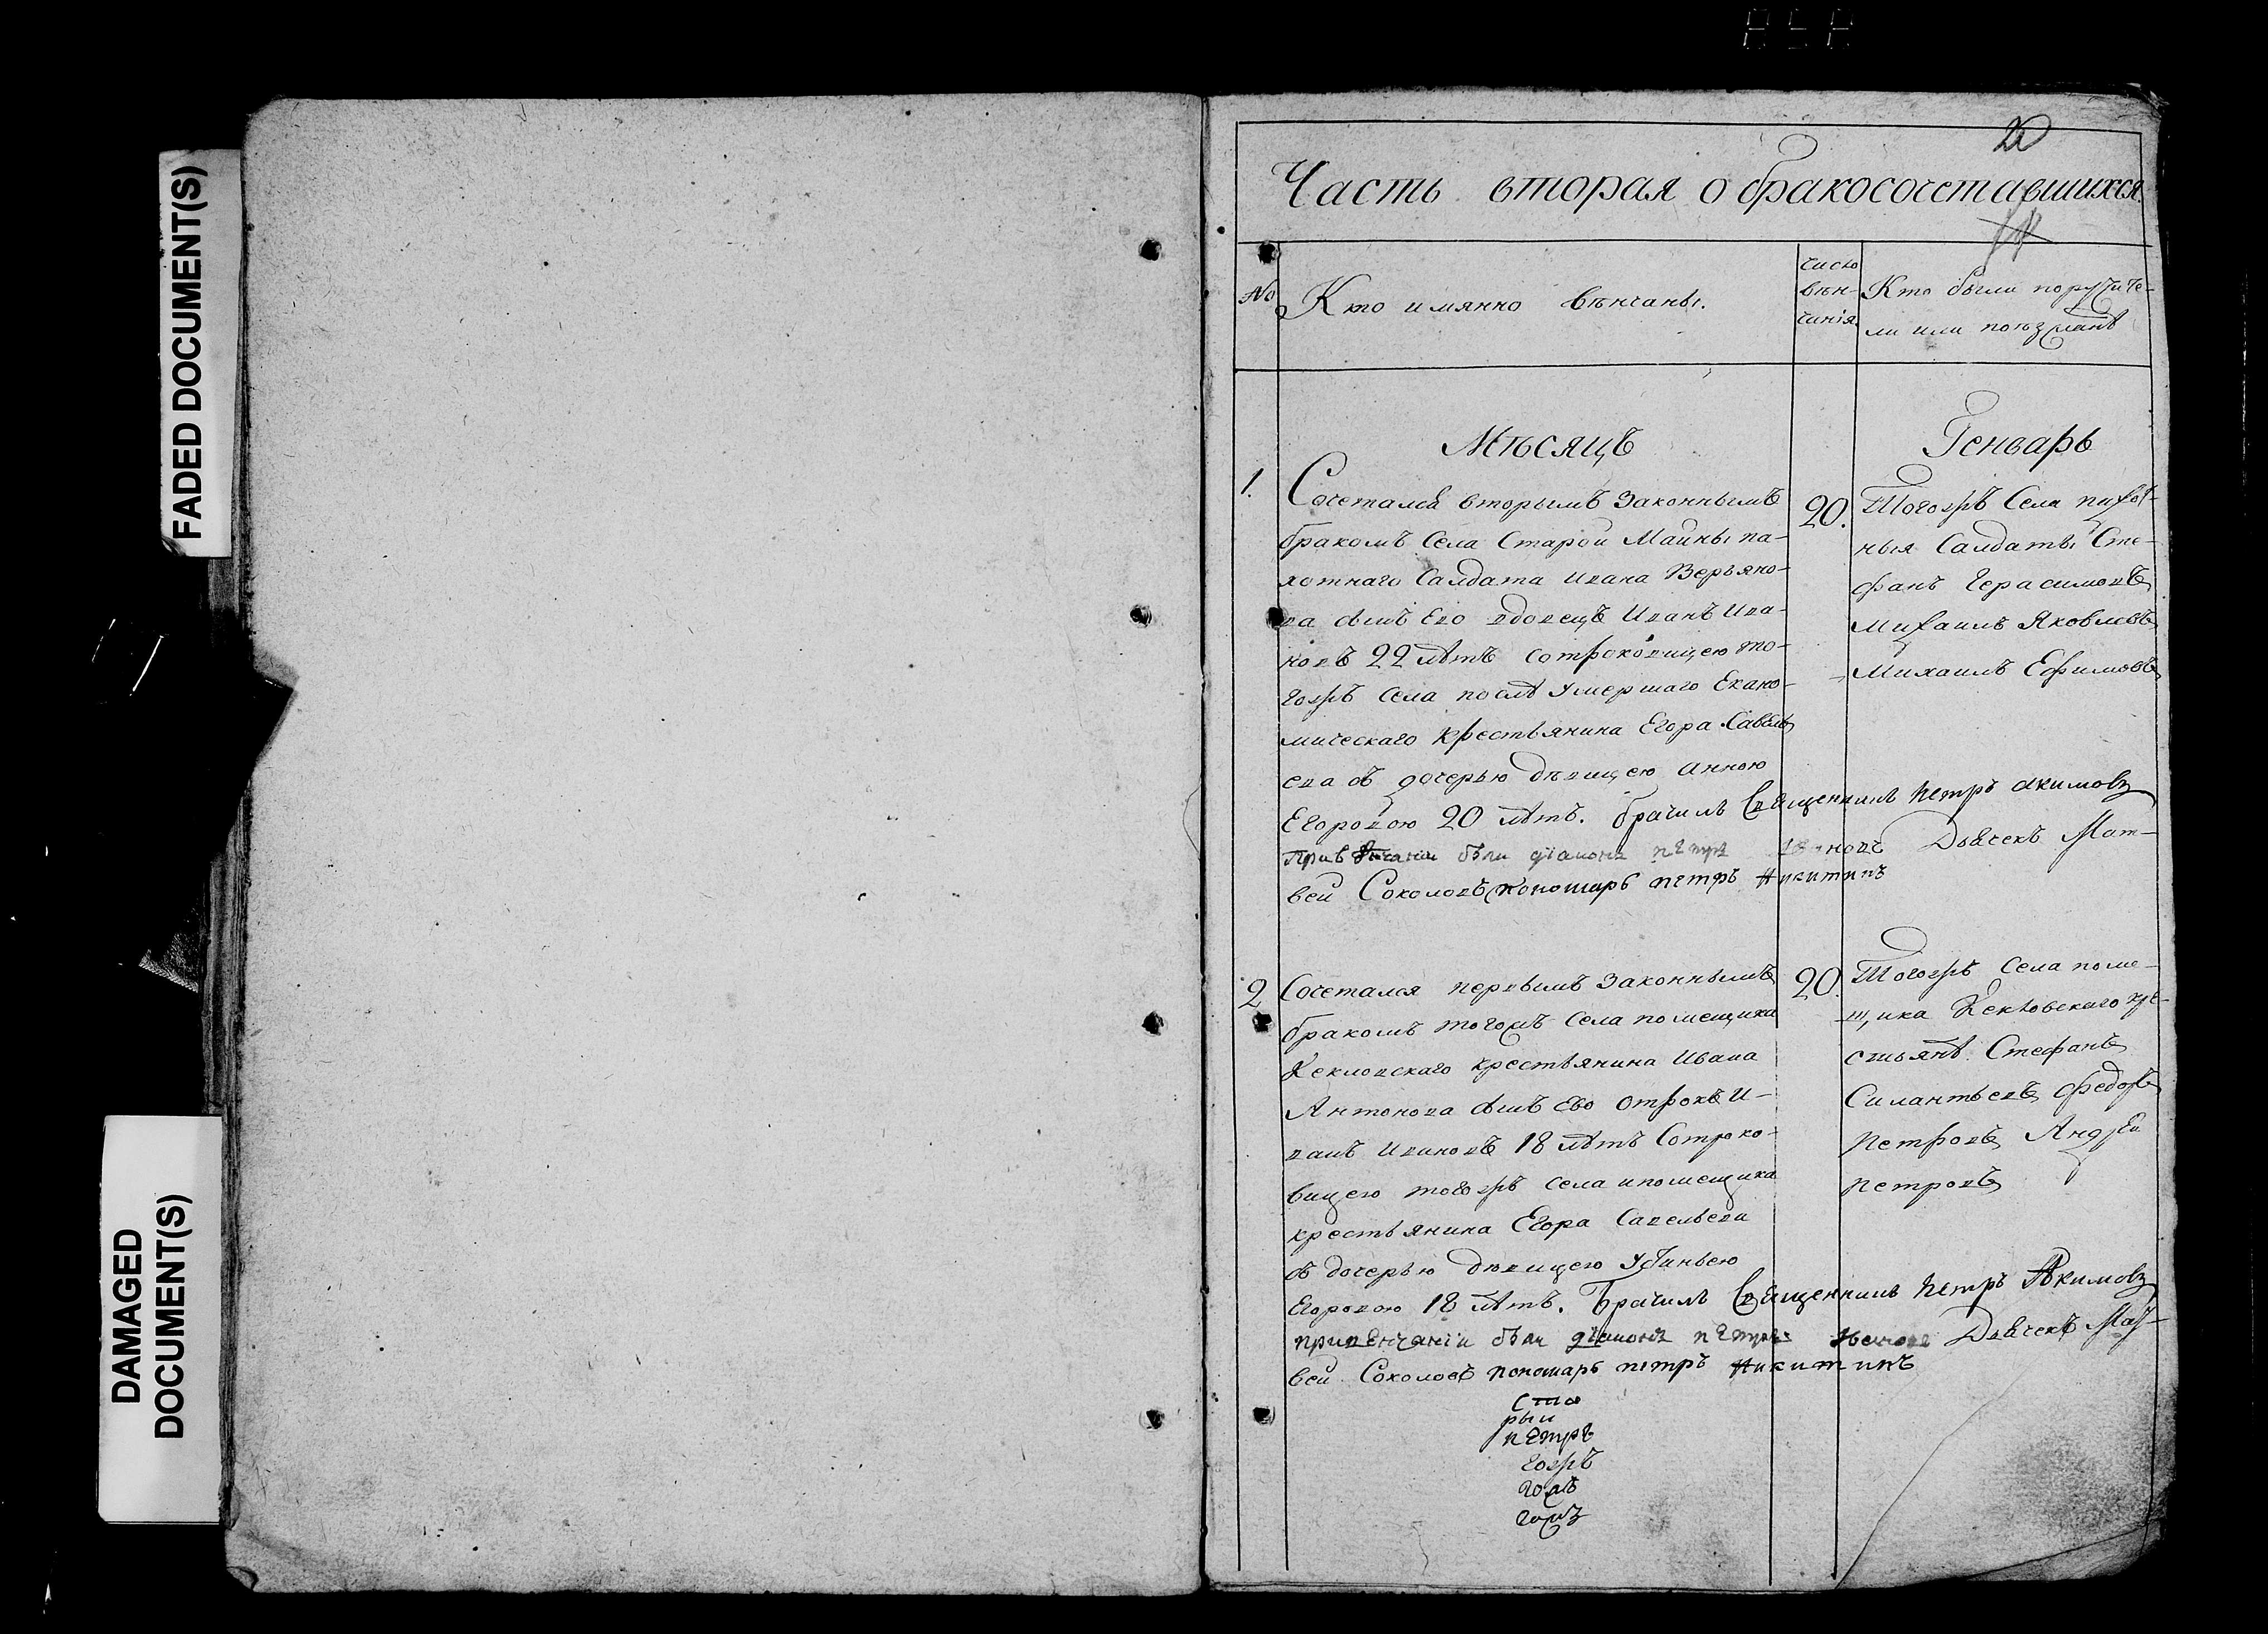 FADED DOCUMENT(S)
DAMAGED
DOCUMENT(S)
20
Часть вторая о бракосочетавшихся
№
Кто имянно вѣнчаны.
число
вѣн-
чанія.
Кто были поручите-
ли или поѣзжанѣ
Мѣсяцъ
Генварь
1.
Сочетался вторымъ законнымъ
бракомъ Села Старой Майны па-
хотнаго Салдата Ивана Верьяно-
ва сынъ Ево вдовецъ Иванъ Ива-
новъ 22 лѣтъ сотроковицею то-
гожъ Села послѣ умершаго Екано-
мическаго крестьянина Егора Савель
ева съ дочерью дѣвицею Анною
Егоровою 20 лѣтъ. Брачилъ Священникъ Петръ Акимовъ
При вѣнчаніи были діаконъ петръ Ивановъ Дьячекъ Мат-
вей Соколовъ пономарь петръ Никитинъ
20.
Тогожъ Села пахот-
ныя Салдаты Сте-
фанъ Герасимовъ
Михаилъ Яковлевъ
Михаилъ Ефимовъ
2
Сочетался первымъ законнымъ
бракомъ тогожъ Села помещика
крестьянина Ивана
Антонова сынъ Ево отрокъ И-
ванъ Ивановъ 18 лѣтъ Сотроко-
вицею тогожъ села ипомещика
крестьянина Егора Савельева
съ дочерью дѣвицею Устиньею
Егоровою 18 лѣтъ. Брачилъ Священникъ Петръ Акимовъ
при венчаніи были діаконъ петръ Ивановъ Дьячекъ Мат-
вей Соколовъ пономарь петръ Никитинъ
20.
Тогожъ Села поме-
щика кре-
стьянѣ Стефанъ
Силантьевъ Федоръ
Петровъ Андрей
Петровъ
Ста
рый
петръ
гожъ
гожъ
гожъ